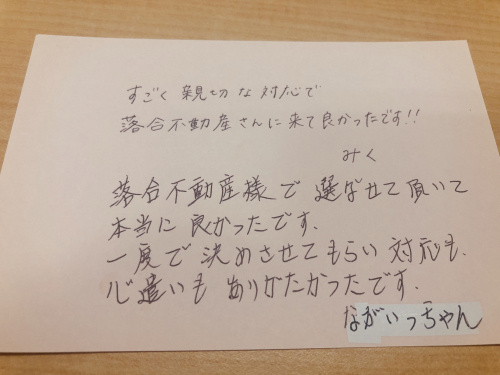 すごく親切な対応で
落合不動産さんに来て良かったです!!
みく
落合不動産様で選ばせて頂いて
本当に良かったです.
一度で決めさせてもらい対応も.
心遣いもありがたかったです.
ながいっちゃん